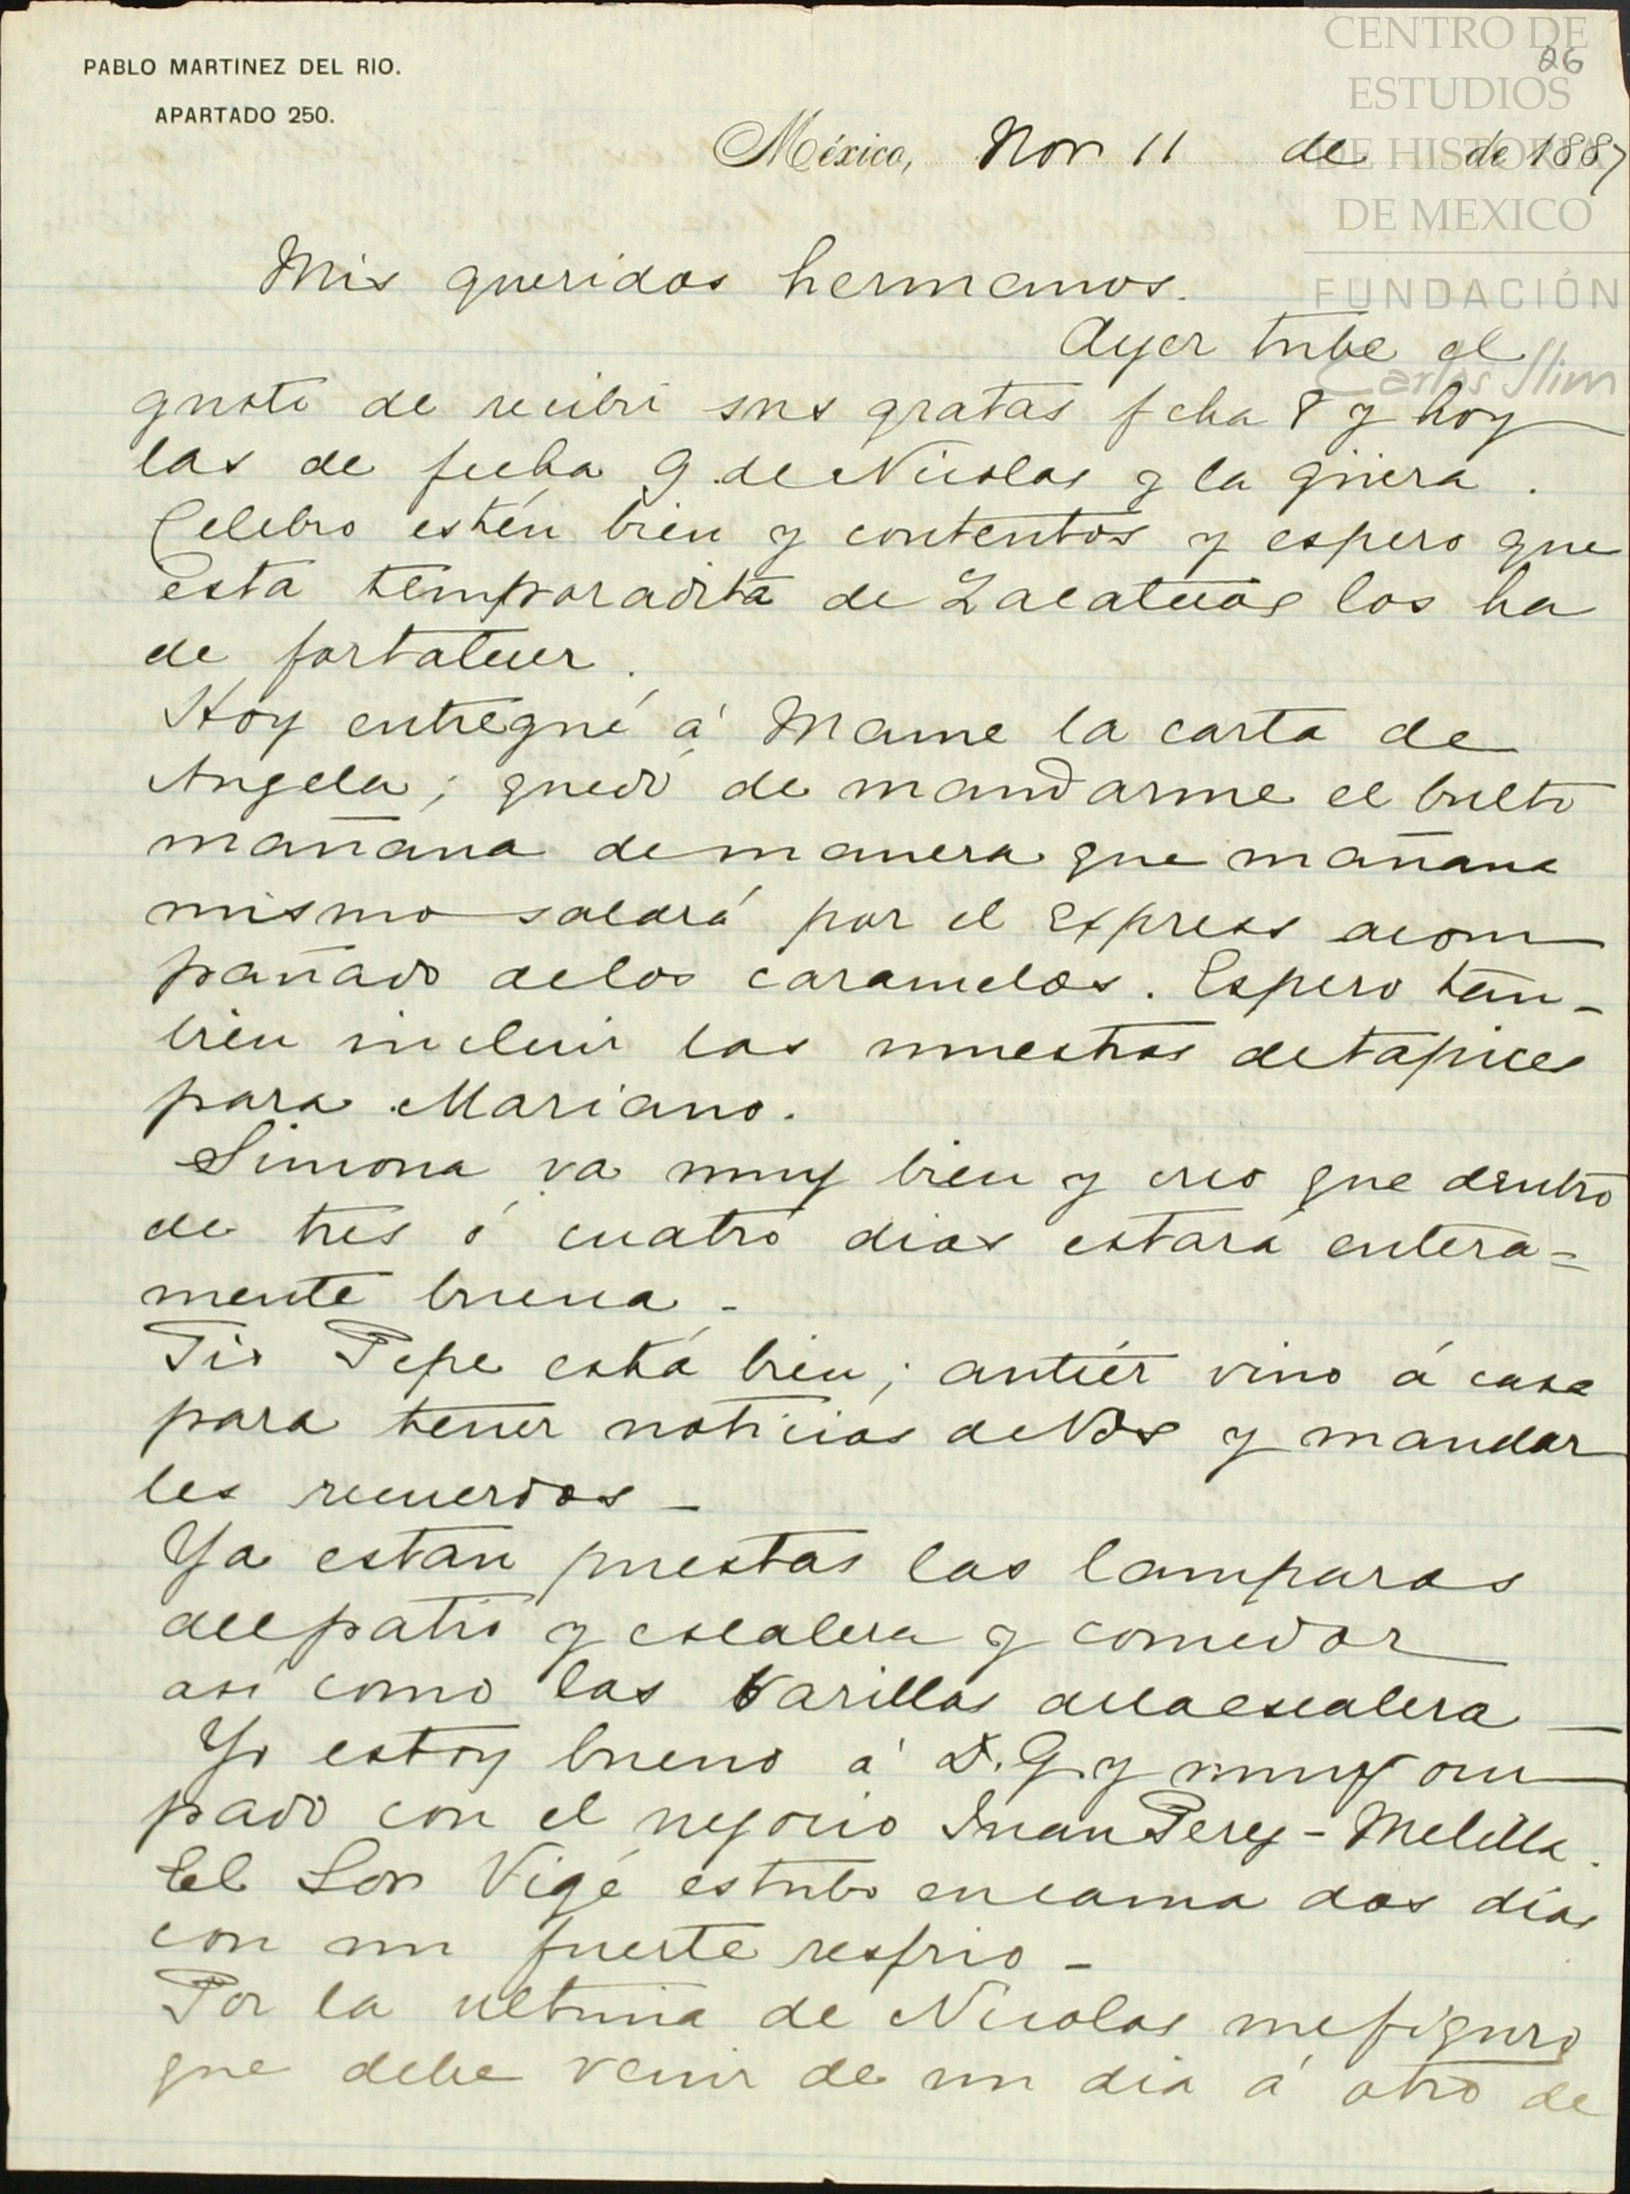 CENTRO DE
ESTUDIOS
DE HISTORIA
DE MEXICO
FUNDACIÓN
Carlos Slim
26
PABLO MARTINEZ DEL RIO.
APARTADO 250.
México, Nov 11 de de 1887
Mis queridos hermanos.
Ayer tube el
gusto de recibir sus gratas fcha 8 y hoy
las de fecha 9 de Nicolas y la güera.
Celebro estén bien y contentos y espero que
esta temporadita de Zacatecas los ha
de fortalecer.
Hoy entregué á Mame la carta de
Angela; quedó de mandarme el bulto
mañana de manera que mañana
mismo saldrá por el express acom
pañado de los caramelos. Espero tam-
bien incluir las muestras de tapices
para Mariano.
Simona va muy bien y creo que dentro
de tres ó cuatro dias estará entera=
mente buena -
Tio Pepe está bien; antiér vino á casa
para tener noticias de Vds y mandar
les recuerdos -
Ya estan puestas las lamparas
del patio y escalera y comedor
asi como las varillas de la escalera —
Yo estoy bueno á D. G. y muy ocu
pado con el negocio Juan Perez - Melilla.
El Sor Vigé estubo en cama dos dias
con un fuerte resfrio -
Por la ultima de Nicolas me figuro
que debe venir de un dia á otro de